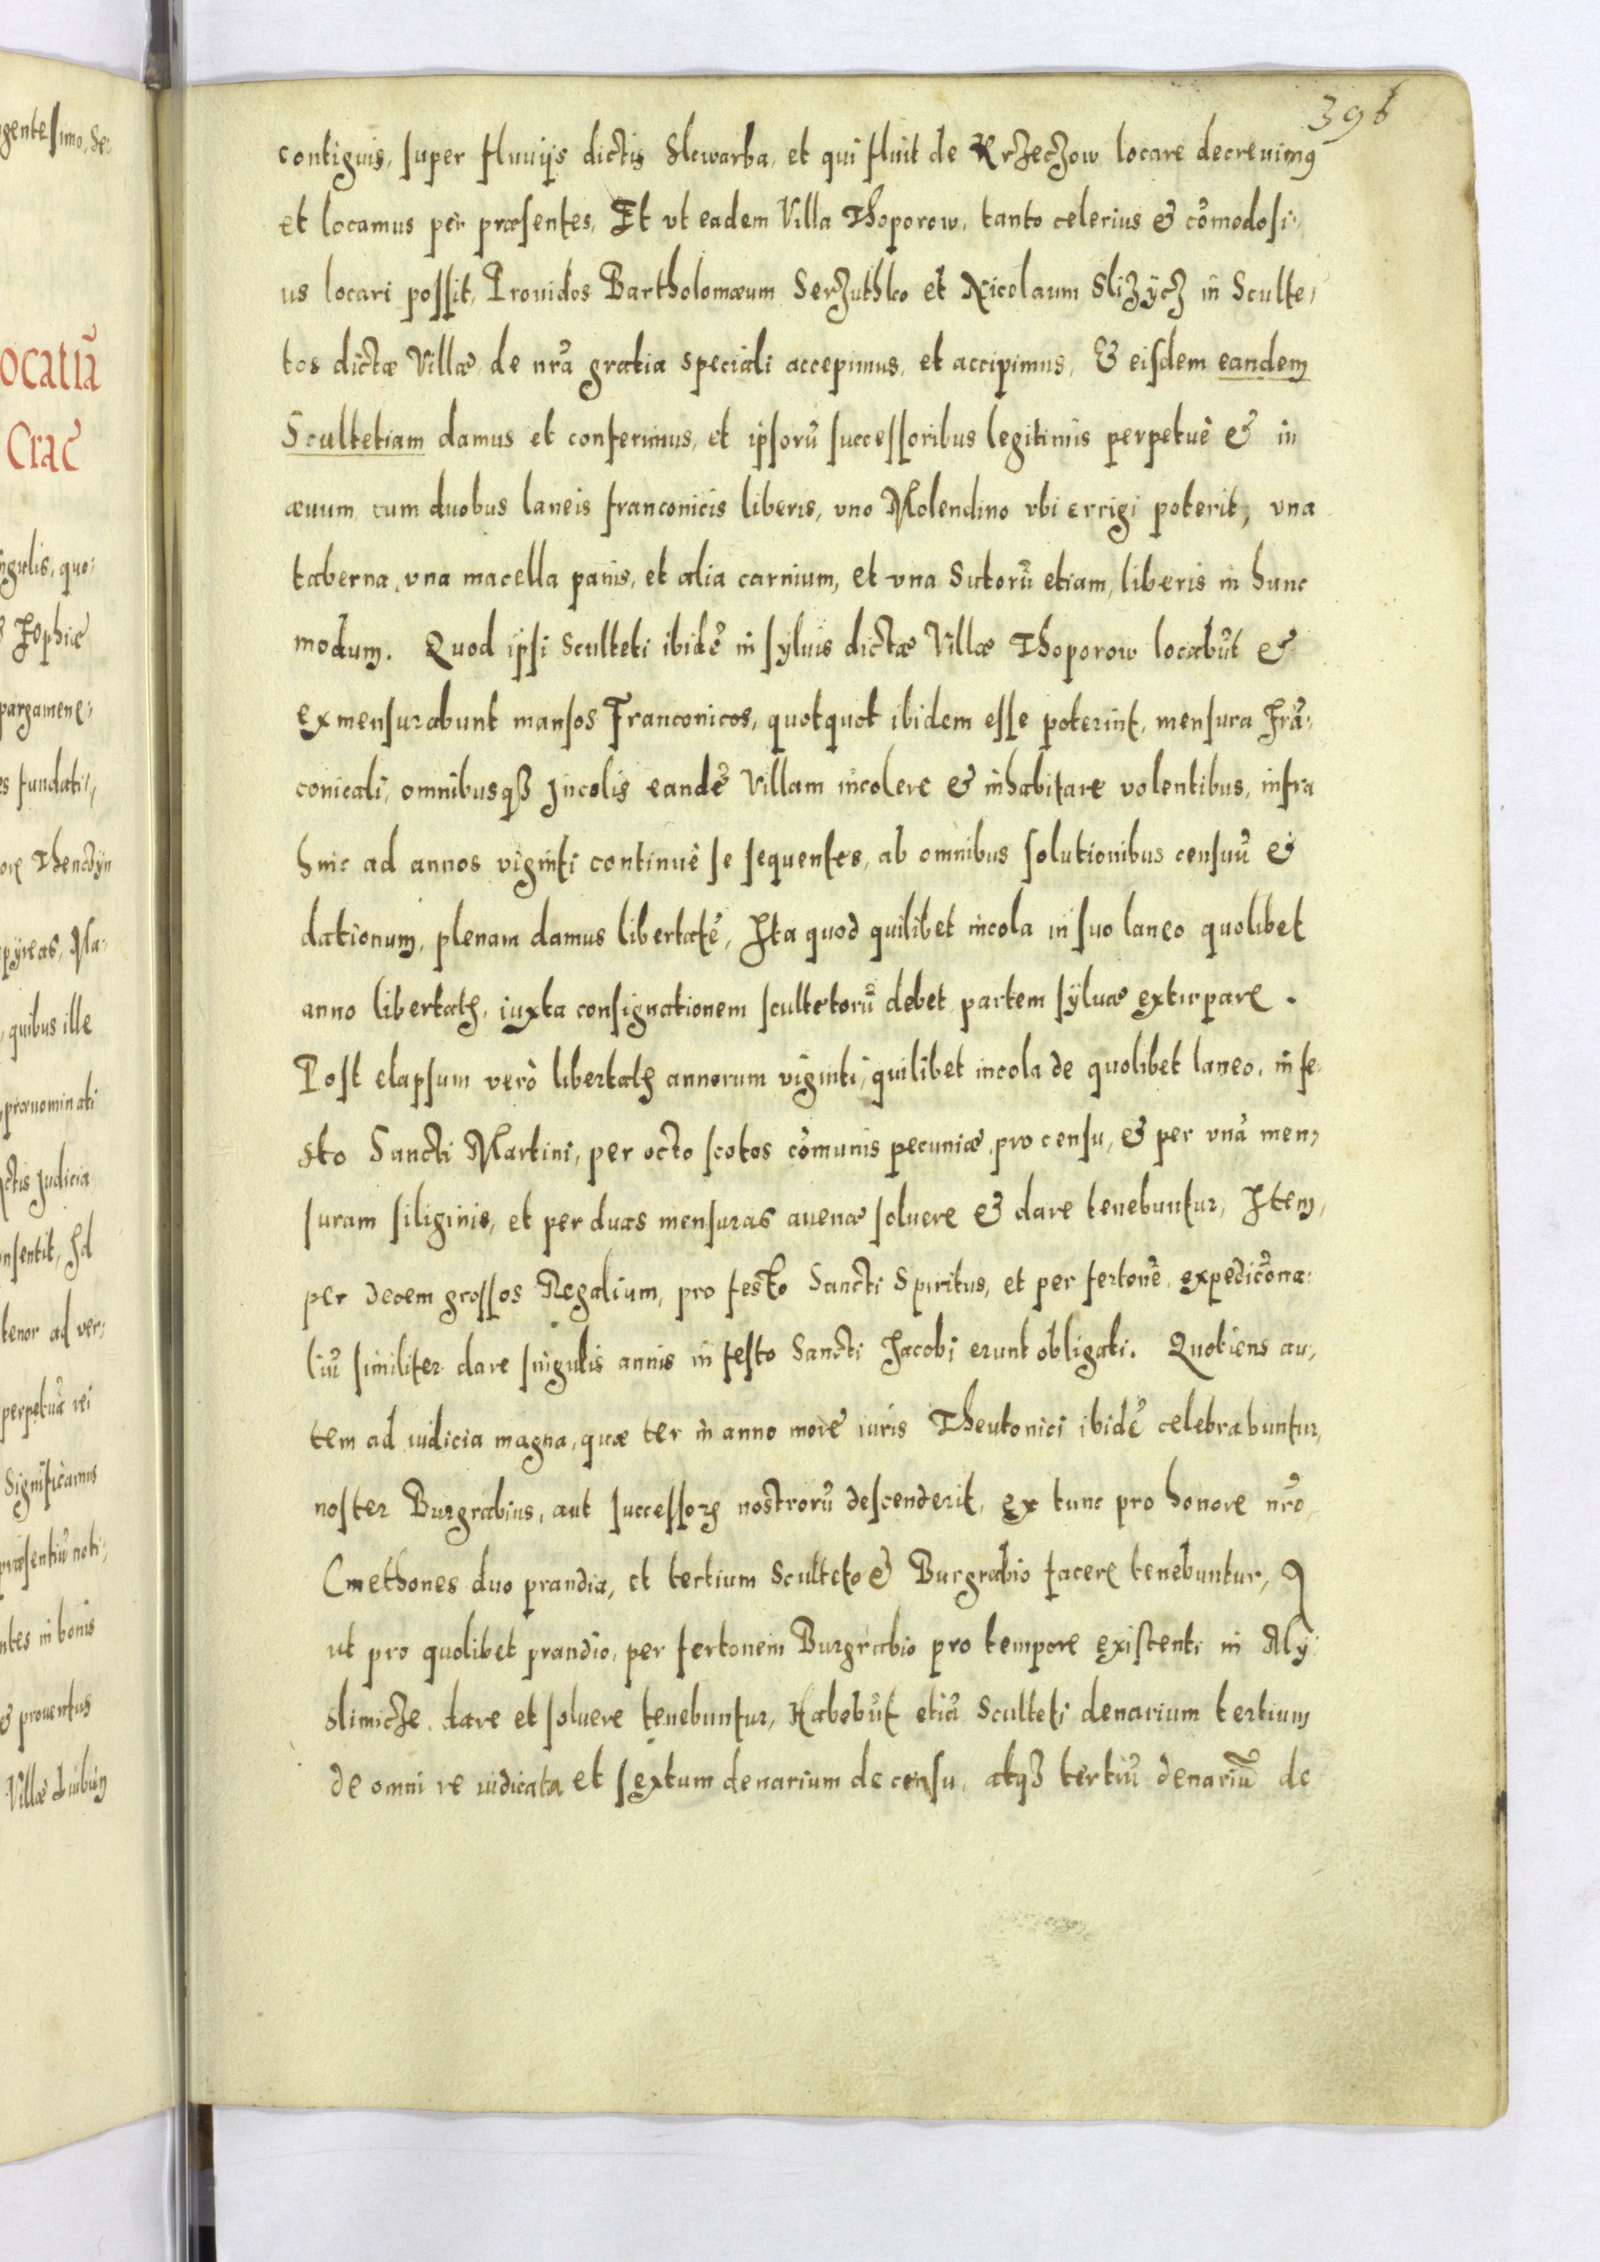 396
contiguis, super fluuijs dictis Skwarba, et qui fluit de Krzeczow locare decreuimꝰ
et locamus per præsentes, Et vt eadem Villa Thoporow, tanto celerius & cõmodosi-
us locari possit, Prouidos Bartholomæum Serzuthko et Nicolaum Slizÿcz in Sculte-
tos dictæ Villæ de nrã gratia speciali accepimus, et accipimus, & eisdem eandem
Scultetiam damus et conferimus, et ipsorũ successoribus legitimis perpetuè & in
æuum cum duobus laneis franconicis liberis, vno Molendino vbi errigi poterit, vna
taberna, vna macella panis, et alia carnium, et vna Sutorũ etiam, liberis in hunc
modum. Quod ipsi Sculteti ibidẽ in syluis dictæ Villæ Thoporow locabũt &
exmensurabunt mansos Franconicos, quotquot ibidem esse poterint, mensura Frã-
conicali, omnibusqꝫ Incolis eandẽ Villam incolere & inhabitare volentibus, infra
hinc ad annos viginti continuè se sequentes, ab omnibus solutionibus censuũ &
dationum, plenam damus libertatẽ, Ita quod quilibet incola in suo laneo quolibet
anno libertatꝭ, iuxta consignationem scultetorũ debet partem sÿluæ extirpare.
Post elapsum verò libertatꝭ annorum viginti, quilibet incola de quolibet laneo, in fe-
sto Sancti Martini, per octo scotos cõmunis pecuniæ, pro censu, & per vnã men-
suram siliginis, et per duas mensuras auenæ soluere & dare tenebuntur, Item,
per decem grossos Regalium, pro festo Sancti Spiritus, et per fertonẽ expedicõna-
liũ similiter dare singulis annis in festo Sancti Jacobi erunt obligati. Quotiens au-
tem ad iudicia magna, quæ ter in anno more iuris Theutonici ibidẽ celebrabuntur,
noster Burgrabius, aut successorꝭ nostrorũ descenderit, ex tunc pro honore nrõ,
Cmethones duo prandia, et tertium Sculteto & Burgrabio facere tenebuntur,
ut pro quolibet prandio, per fertonem Burgrabio pro tempore existenti in My-
slimicze dare et soluere tenebuntur, Habebũt etiã Sculteti denarium tertium
de omni re iudicata et sextum denarium de censu, atqꝫ tertiũ denariũ de